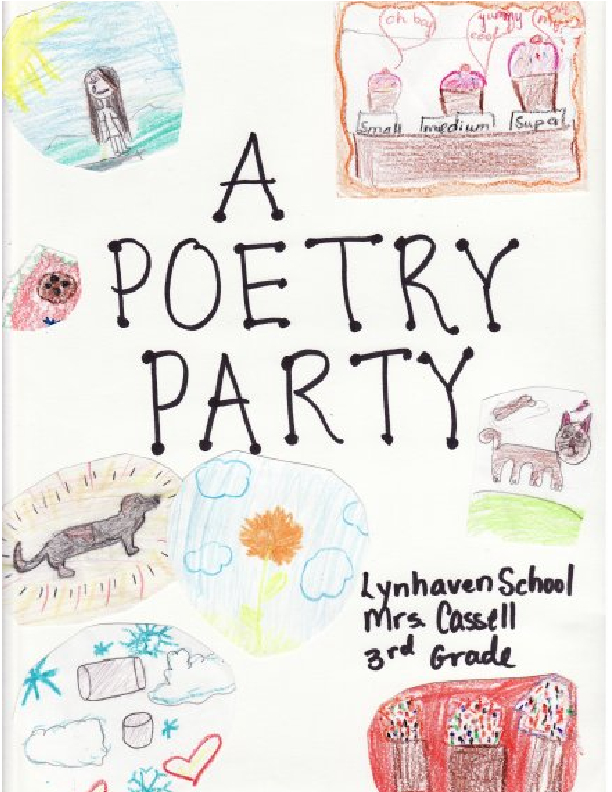 oh boy
yummy
cool
Small
medium
Supal
A
POETRY
PARTY
Lynhaven School
Mrs. Cassell
3rd Grade